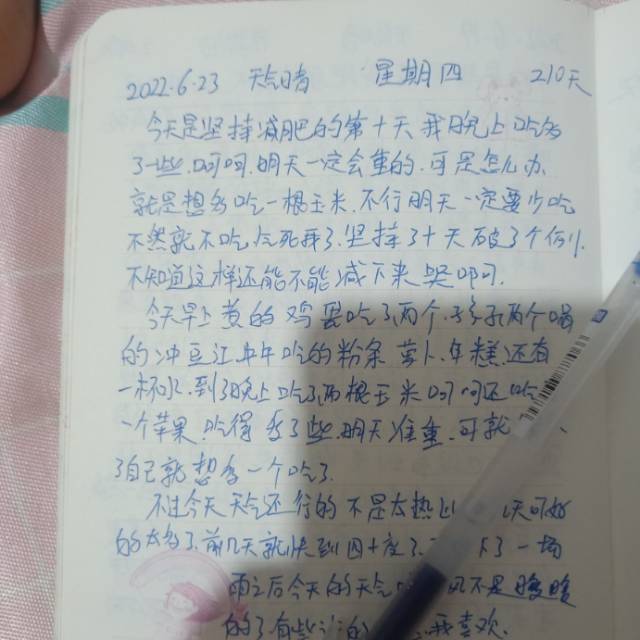 2022.6.23 天气晴 星期四 210天
今天是坚持减肥的第十天我晚上吃多
了一些.呵呵.明天一定会重的.可是怎么办
就是想多吃一根玉米.不行明天一定要少吃
不然就不吃 死我了.坚持了十天破了个例.
不知道这样还能不能减下来哭呵.
今天早上煮的鸡蛋吃了两个. 两个喝
的冲豆江中午吃的粉条 萝卜.年糕还有
一杯水.到了晚上吃了两根玉米呵呵还吃
一个苹果.吃得多了些.明天准重.可
了自己就想多一个吃了
不过今天天气还行的不是太热比 天可好
的太多了前几天就快到四十度了. 下了一场
雨之后今天的天气 风不是暖暖
的了有些凉的 我喜欢.